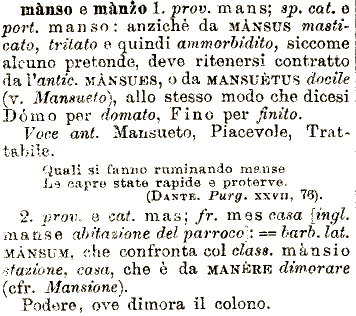 mànso e mànẓo 1. prov. mans; sp. cat. e
port. manso: anzichè da MÀNSUS masti-
cato, tritato e quindi ammorbidito, siccome
alcuno pretende, deve ritenersi contratto
da l'antic. MÀNSUES, o da MANSUÈTUS docile
(v. Mansueto), allo stesso modo che dicesi
Dómo per domato, Fino per finito.
Voce ant. Mansueto, Piacevole, Trat-
tabile.
Quali si fanno ruminando manse
Le capre state rapide e proterve.
(DANTE. Purg. XXVII, 76).
2. prov. e cat. mas; fr. mes casa [ingl.
manse abitazione del parroco]: = barb. lat.
MÀNSUM, che confronta col class. mànsio
stazione, casa, che è da MANÈRE dimorare
(cfr. Mansione).
Podere, ove dimora il colono.